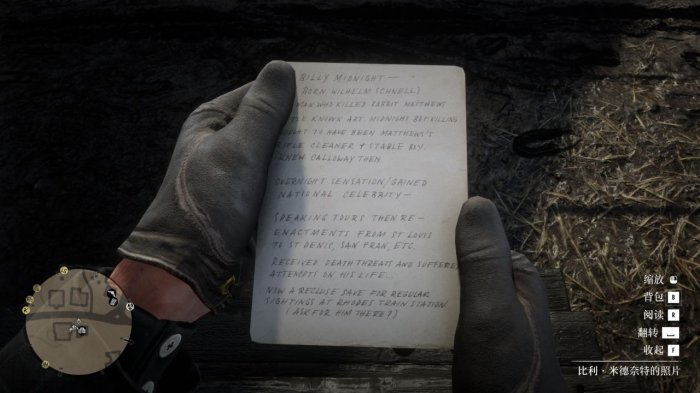 BILLY MIDNIGHT —
BORN WILHELM SCHNELL)
MAN WHO KILLED RABBIT MATTHEWS
KNOWN ABT. MIDNIGHT BEF. KILLING
TO HAVE BEEN MATTHEWS'S
RIFLE CLEANER + STABLE BOY.
KNEW CALLOWAY THEN.
OVERNIGHT SENSATION/GAINED
NATIONAL CELEBRITY —
SPEAKING TOURS THEN RE-
ENACTMENTS FROM ST LOUIS
TO ST DENIS, SAN FRAN, ETC.
RECEIVED DEATH THREATS AND SUFFERED
ATTEMPTS ON HIS LIFE...
NOW A RECLUSE SAVE FOR REGULAR
SIGHTINGS AT RHODES TRAIN STATION
(ASK FOR HIM THERE?)
缩放
背包 B
阅读 R
翻转
收起 F
比利·米德奈特的照片